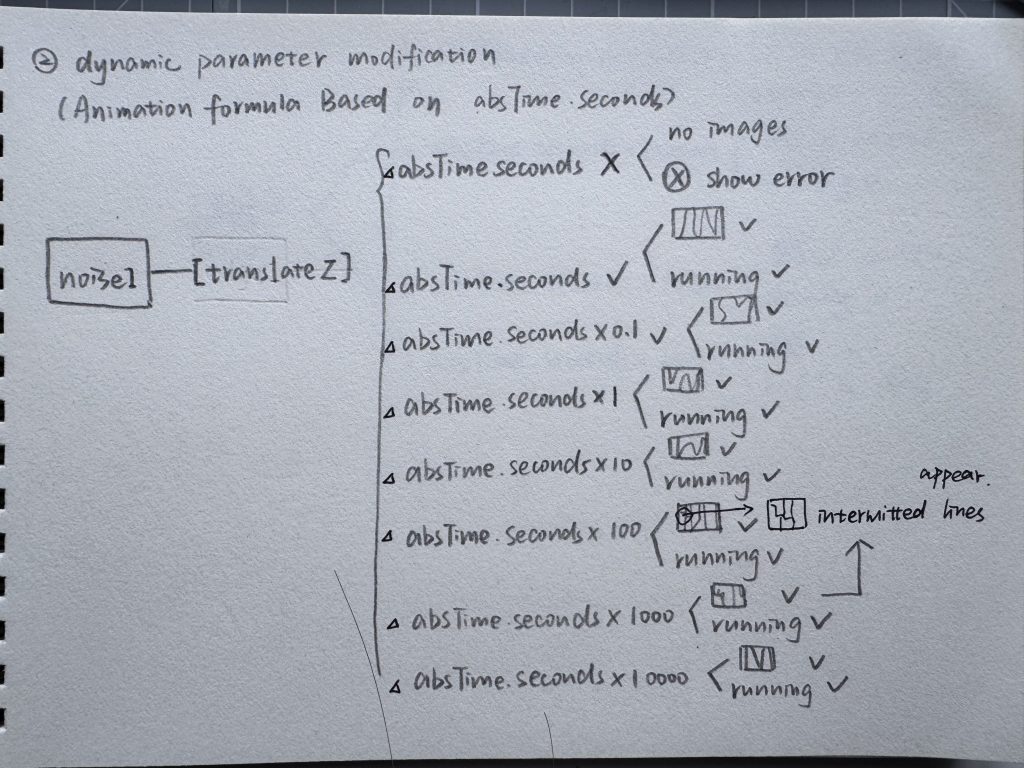 ② dynamic parameter modification
(Animation formula Based on absTime.seconds)
no images
absTime seconds X
Ⓧ show error
✓
noise1 [translate Z]
absTime.seconds ✓
running ✓
✓
absTime.seconds x0.1 ✓
running ✓
✓
absTime.seconds x1
running ✓
✓
absTime.seconds x10
running ✓
appear.
✓ intermitted lines
absTime.seconds x 100
running ✓
✓
absTime.seconds x 1000
running ✓
✓
absTime.seconds x 10000
running ✓